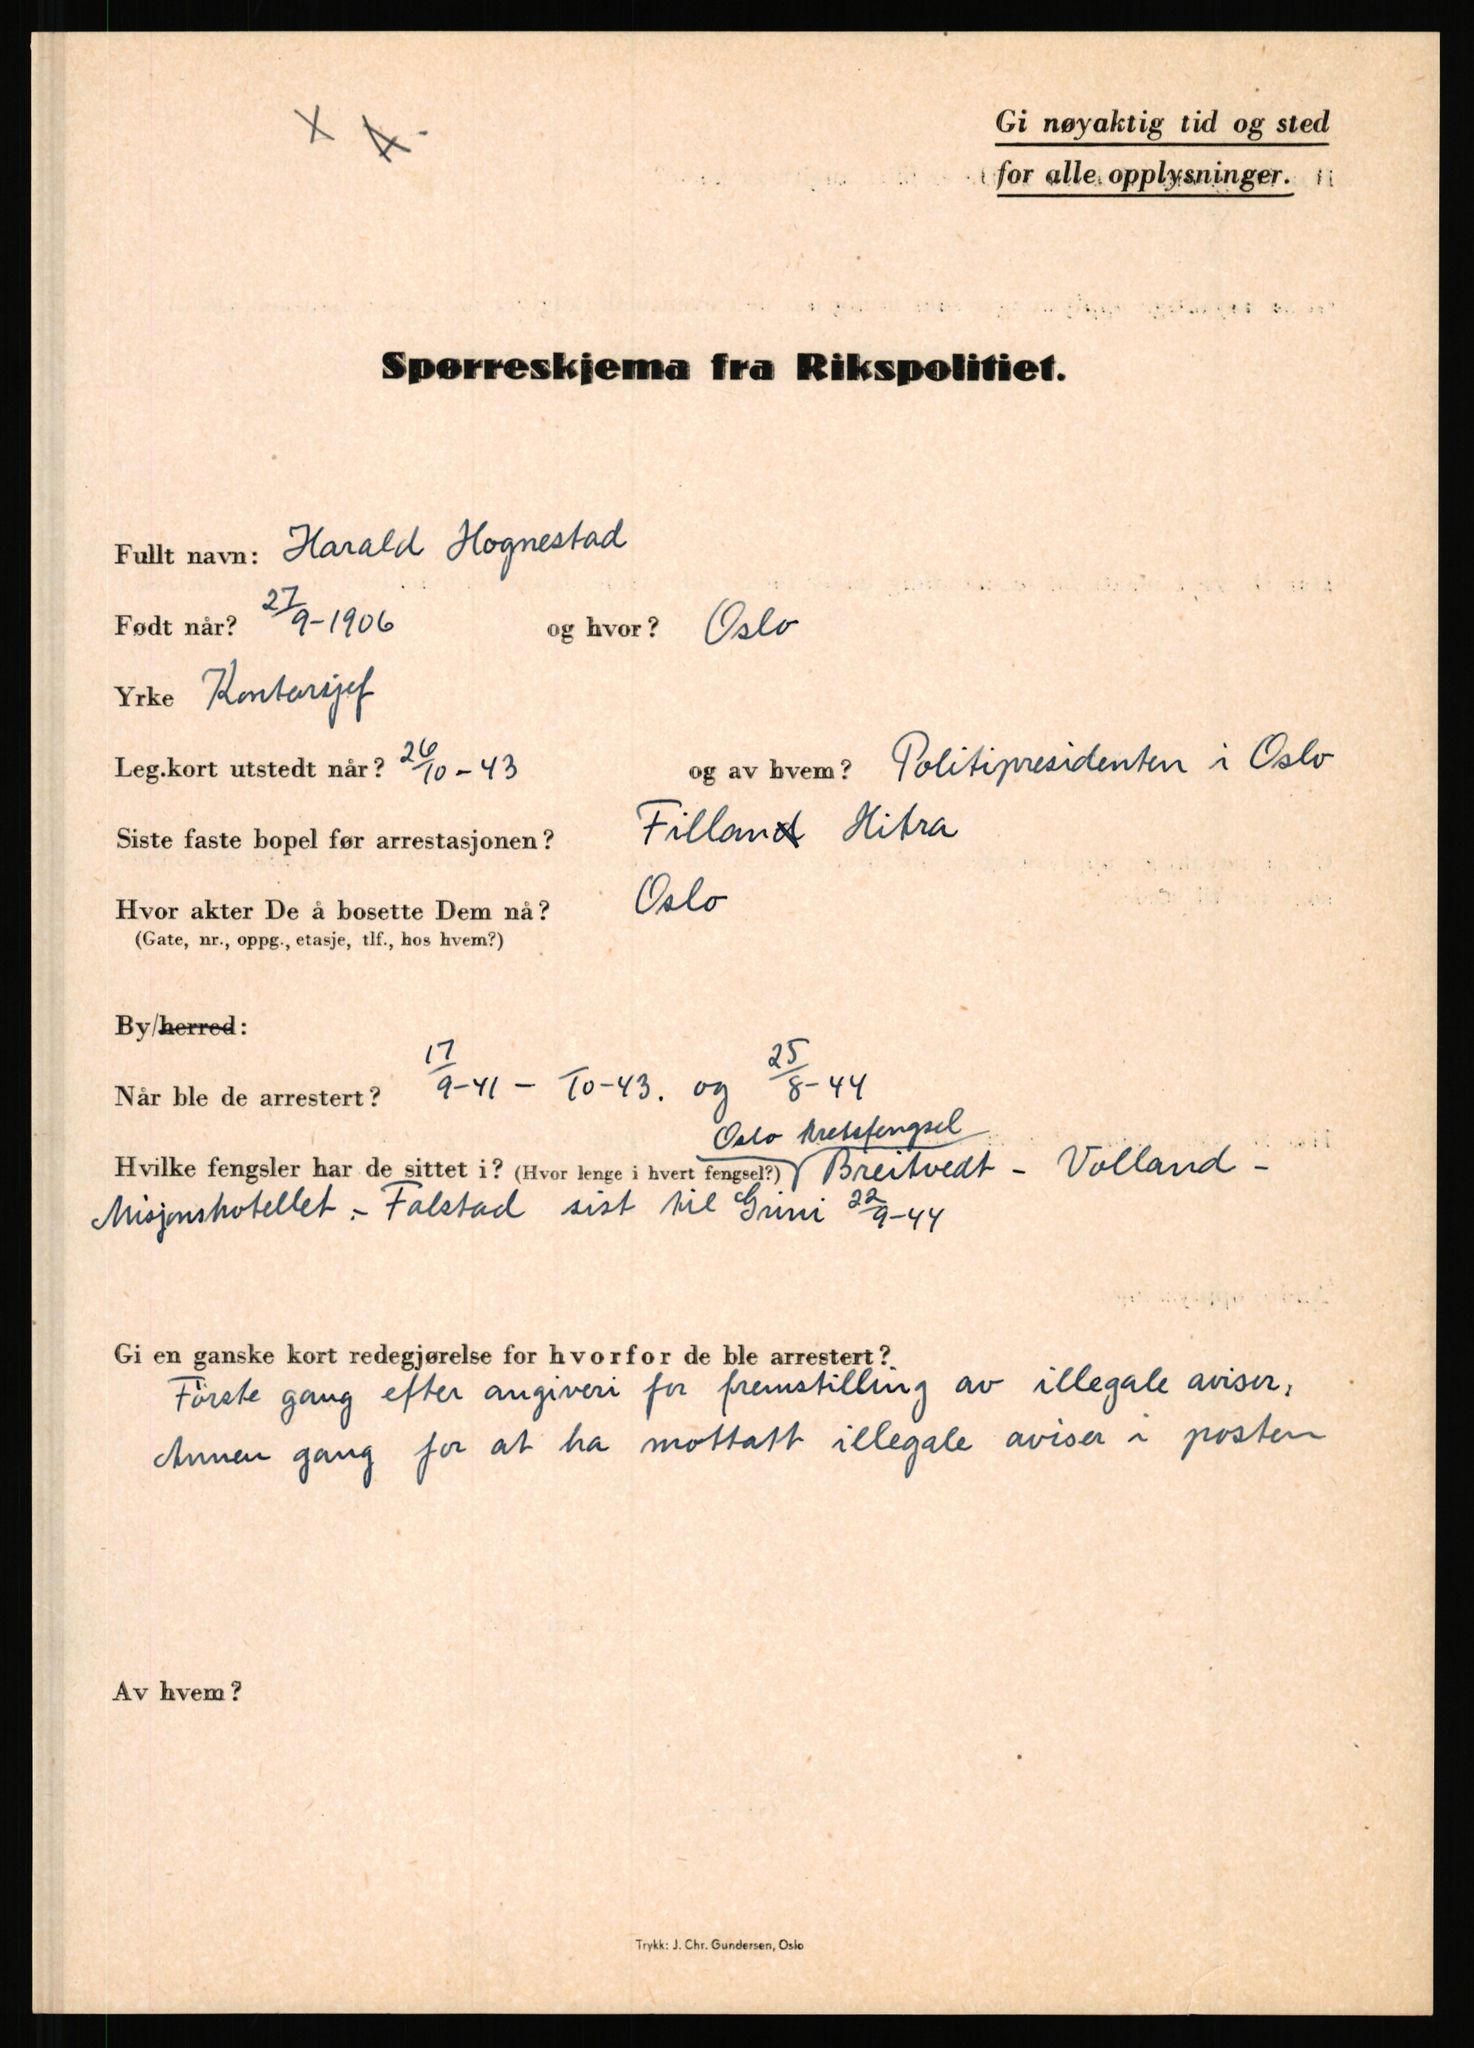 X A.
Gi nøyaktig tid og sted
for alle opplysninger.
Spørreskjema fra Rikspolitiet.
Fullt navn: Harald Hognestad
Født når? 27/9-1906 og hvor? Oslo
Yrke Kontorsjef
Leg.kort utstedt når? 26/10-43 og av hvem? Politipresidenten i Oslo
Siste faste bopel før arrestasjonen? Fillan Hitra
Hvor akter De å bosette Dem nå? Oslo
(Gate, nr., oppg., etasje, tlf., hos hvem?)
By/herred:
Når ble de arrestert? 17/9-41 - /10-43. og 25/8-44
Oslo Kretsfengsel
Hvilke fengsler har de sittet i? (Hvor lenge i hvert fengsel?) Breitvedt - Volland -
Misjonshotellet - Falstad sist til Grini 22/9-44
Gi en ganske kort redegjørelse for hvorfor de ble arrestert?
Förste gang efter angiveri for fremstilling av illegale aviser,
Annen gang for at ha mottatt illegale aviser i posten
Av hvem?
Trykk: J. Chr. Gundersen, Oslo